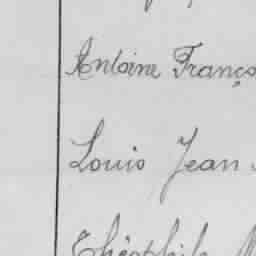 Antoine Franço
Louis Jean
Théophile